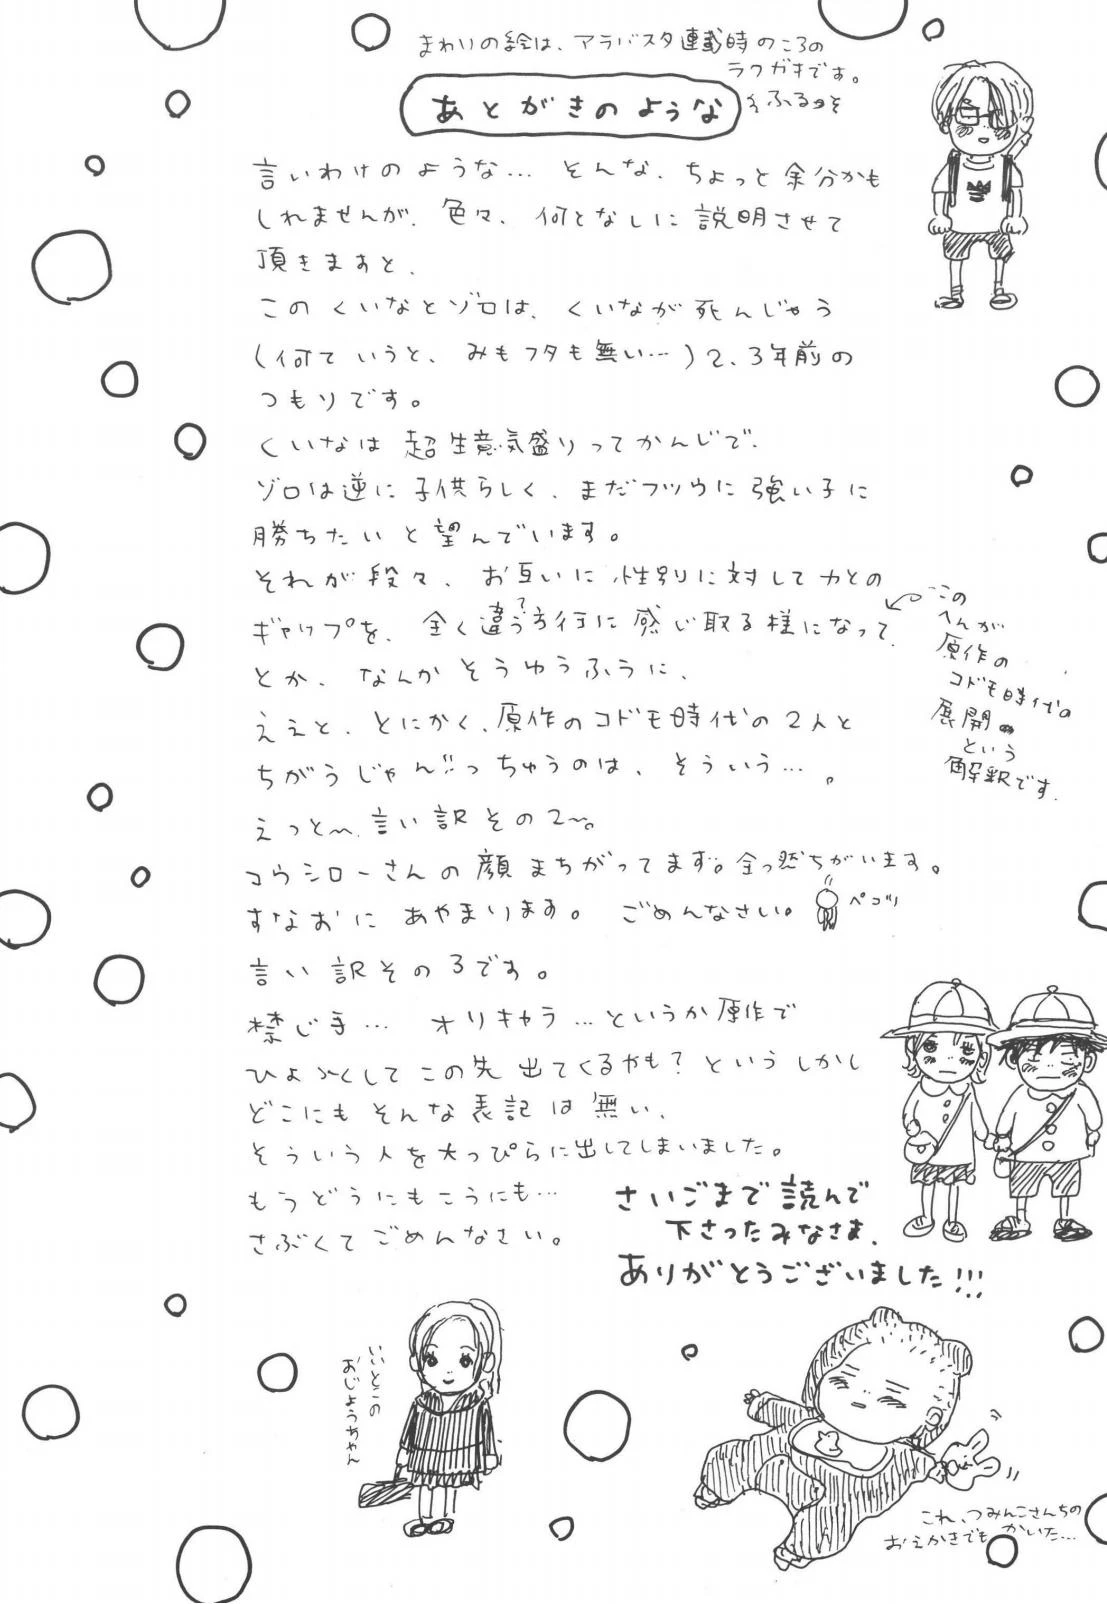 まわりの絵は、アラバスタ連載時のころの
ラクガキです。
ふるっ
あとがきのような
言いわけのような… そんな、ちょっと余分かも
しれませんが、色々、何となしに説明させて
頂きますと、
このくいなとゾロは、くいなが死んじゃう
(何ていうと、みもフタも無い…)2、3年前の
つもりです。
くいなは超生意気盛りってかんじで、
ゾロは逆に子供らしく、まだフツウに強い子に
勝ちたいと望んでいます。
それが段々、お互いに性別に対して力との
ギャップを、全く違う?方行に感じ取る様になって、
とか、なんかそうゆうふうに、
ええと、とにかく、原作のコドモ時代の2人と
ちがうじゃん!!っちゅうのは、そういう…。
この
へんが
原作の
コドモ時代の
展開
という
解釈です。
えっと〜、言い訳その2〜。
コウシローさんの顔まちがってます。全っ然ちがいます。
すなおにあやまります。 ごめんなさい。
ペコリ
言い訳その3です。
禁じ手… オリキャラ…というか原作で
ひょっとしてこの先出てくるかも?というしかし
どこにもそんな表記は無い、
そういう人を大っぴらに出してしまいました。
もうどうにもこうにも…
さぶくてごめんなさい。
さいごまで読んで
下さったみなさま、
ありがとうございました!!!
いいとこの
おじょうちゃん
これ、つみんこさんちの
おえかきでもかいた…